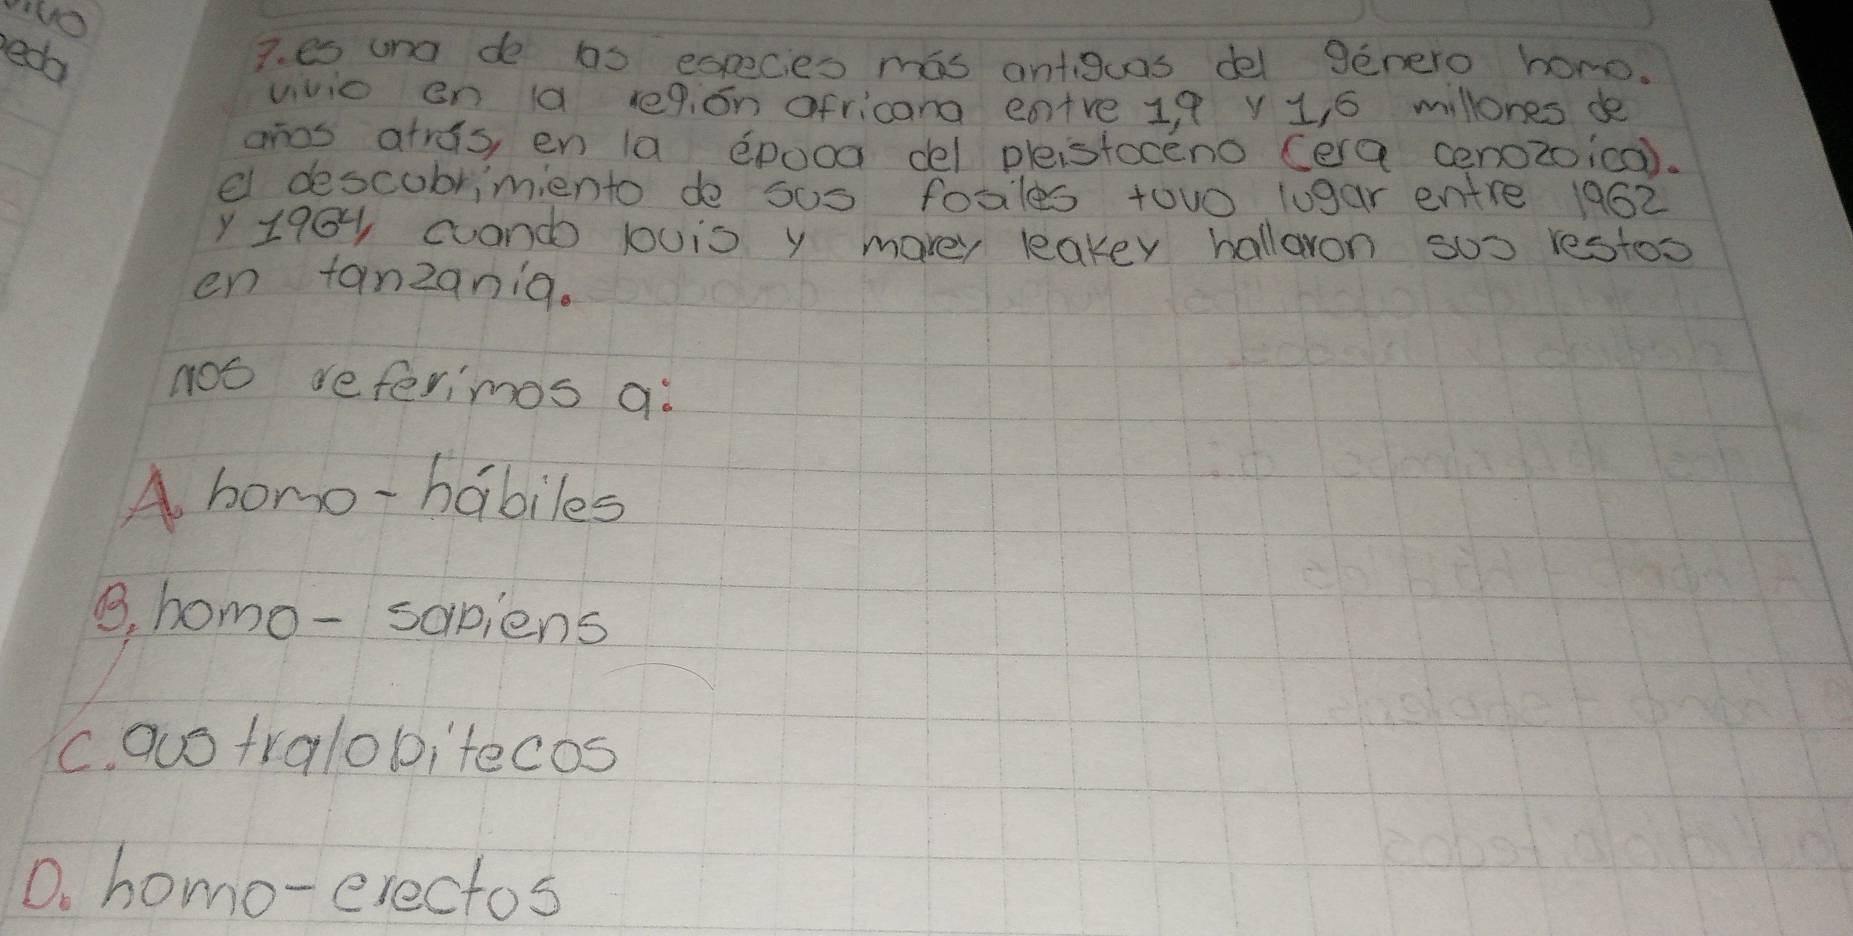 7. es una de las especies más antiguas del género homo.
vivio en la región africana entre 1,9 y 1,6 millones de
años atrás, en la época del pleistoceno (era cenozoica).
el descubrimiento de sus fosiles tuvo lugar entre 1962
y 1964, cuando louis y marey leakey hallaron sus restos
en tanzania.
nos referimos a:
A. homo-hábiles
B. homo- sapiens
C. australopitecos
D. homo-erectos